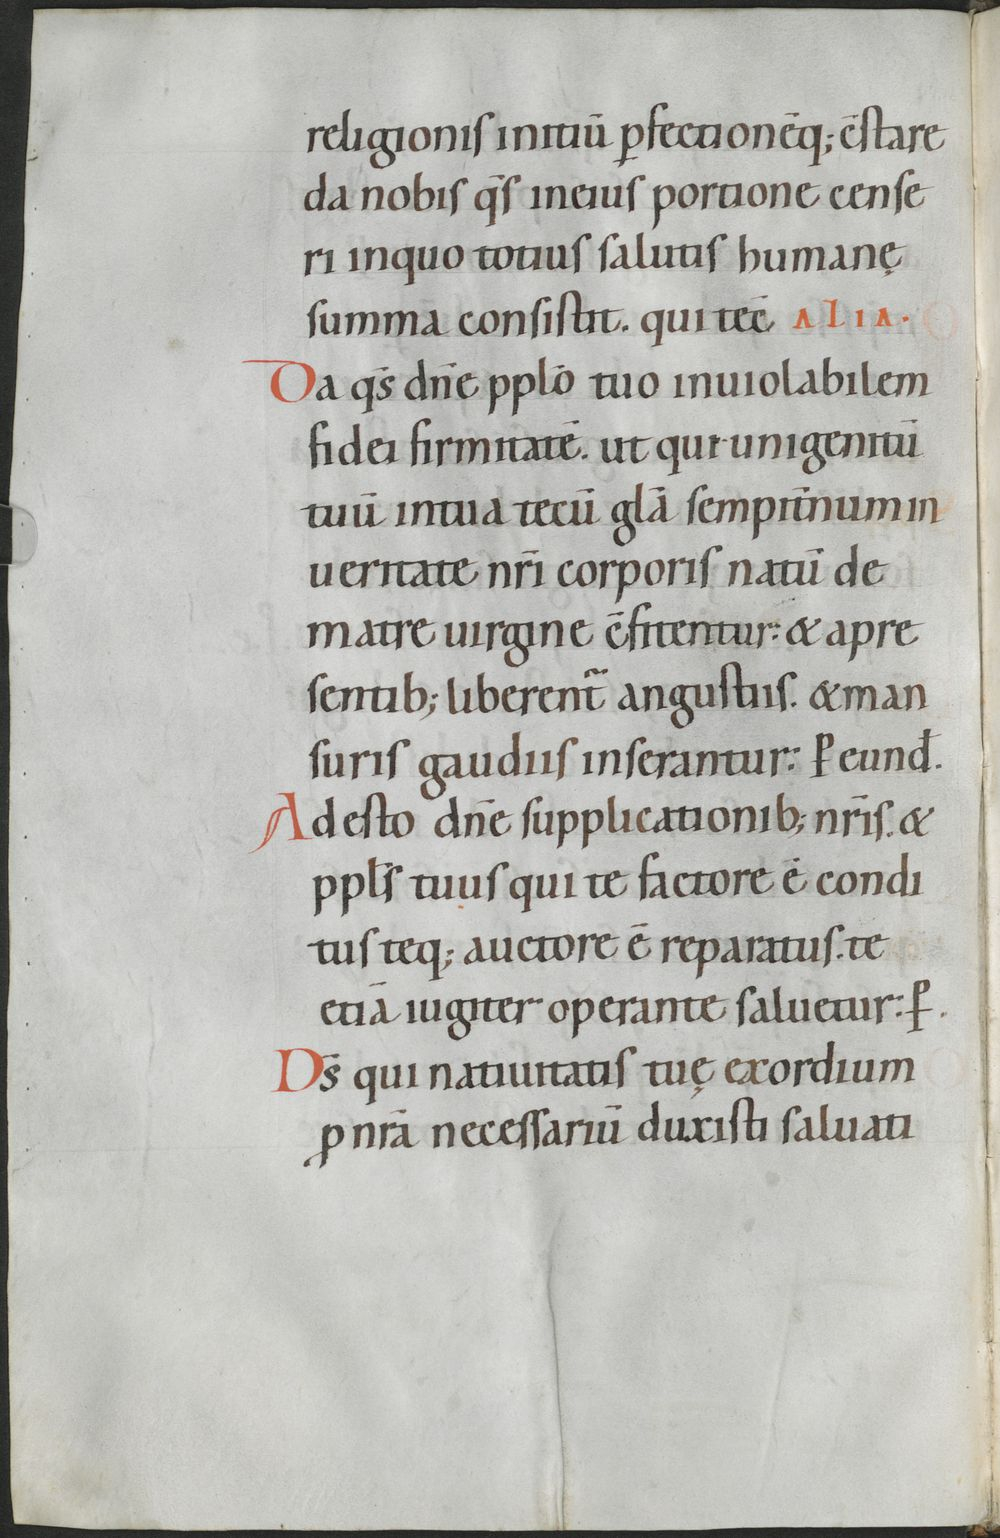 religionis initiū ꝑfectionēq; c̄stare
da nobis q̄s ineius portione cense
ri inquo totius salutis humanę
summa consistit. qui tec̄ ALIA.
Da q̄s dn̄e pplō tuo inuiolabilem
fidei firmitatē. ut qui unigenitū
tuū intua tecū glā sempit̄num in
ueritate nr̄i corporis natū de
matre uirgine c̄fitentur: & apre
sentib; liberent̄ angustiis. & man
suris gaudiis inserantur: P eund̄.
Adesto dn̄e supplicationib; nr̄is. &
ppls̄ tuus qui te factore ē condi
tus teq; auctore ē reparatus. te
etiā iugiter operante saluetur: P.
Ds̄ qui natiuitatis tuę exordium
ꝓ nrā necessariū duxisti saluati